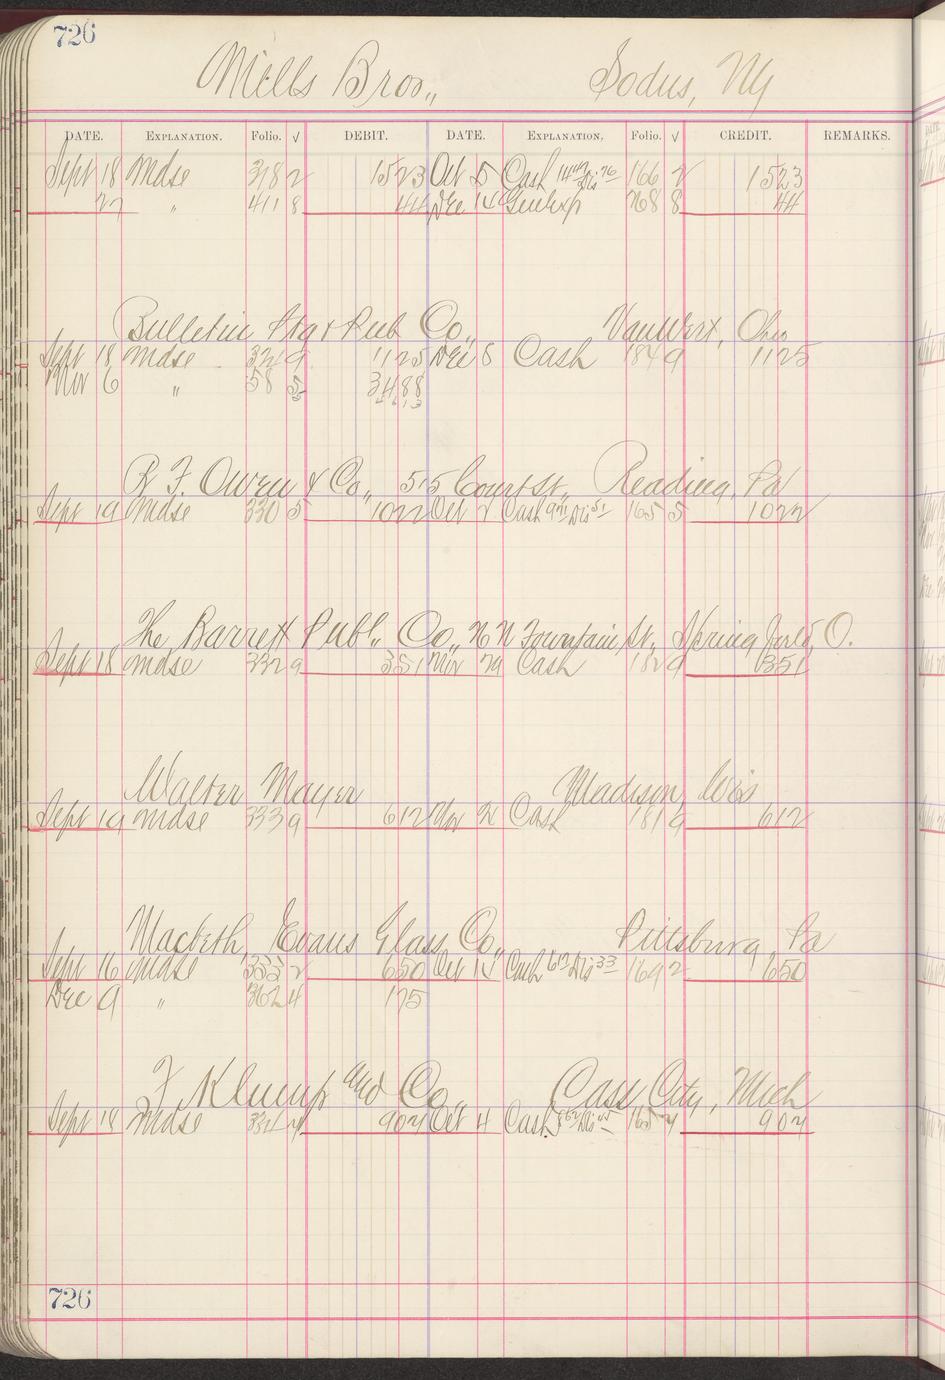 726
Mills Bros., Sodus, NY
DATE. EXPLANATION. Folio. √ DEBIT. DATE. EXPLANATION. Folio. √ CREDIT. REMARKS.
Sept 18 Mdse 318 2 1523 Oct 5 Cash 1447 Dis 76 166 2 1523
27 " 411 8 44 Dec 14 Gen Exp 768 8 44
Bulletin Ptg & Pub Co., Van Wert, Ohio
Sept 18 Mdse 321 9 1125 Dec 8 Cash 184 9 1125
Nov 6 " 58 5 3488
R. F. Owen & Co., 515 Court St., Reading, Pa
Sept 19 Mdse 330 5 1022 Oct 2 Cash 971 Dis 51 165 5 1022
The Barrett Publ., Co., N Fountain St., Springfield, O.
Sept 18 Mdse 332 9 351 Nov 29 Cash 182 9 351
Walter Mayer Madison, Wis
Sept 19 Mdse 333 9 612 Nov Cash 181 9 612
Macbeth, Evans Glass Co., Pittsburg, Pa
Sept 16 Mdse 333 2 650 Oct 14 Cash 617 Dis 33 169 2 650
Dec 9 " 362 4 175
F Klump and Co., Cass City, Mich
Sept 18 Mdse 334 4 907 Oct 4 Cash 862 Dis 45 165 4 907
726